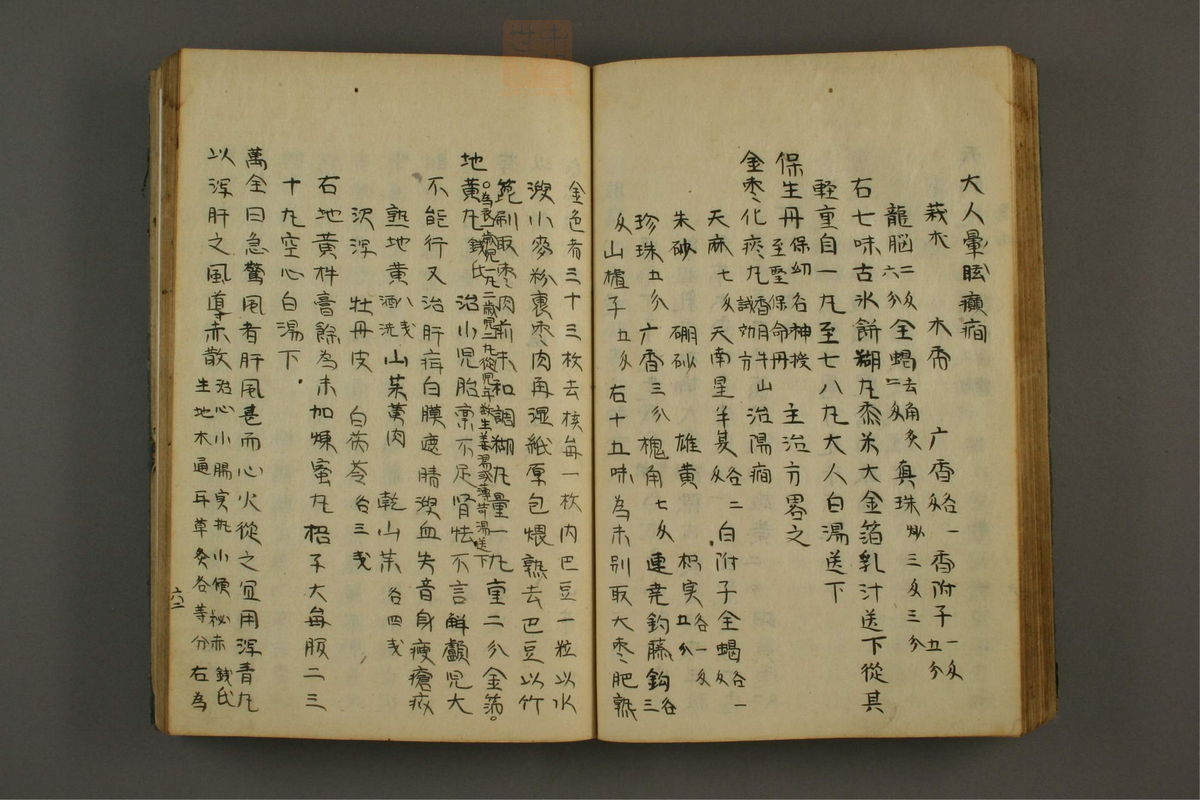 大人暈眩癲癎
莪朮 木香 广香各一 香附子一戔五分
龍腦二戔六分 全蝎二戔去角炙 真珠炒三戔三分
右七味古氷餅糊丸黍米大金箔乳汁送下從其
輕重自一丸至七八丸大人白湯送下
保生丹 保幼各神授 至聖保命丹 主治方畧之
金枣化痰丸 香月牛山試効方 治陽癎
天麻七戔 天南星 半夏各二 白附子 全蝎各一戔
朱砂 硼砂 雄黄 枳実各一戔五分
珍珠五分 广香三分 槐角七戔 連尭 釣藤鈎各三
戔 山樝子五戔 右十五味為末別取大枣肥熟
金色者三十三枚去核每一枚内巴豆一粒以水
溲小麥粉裹枣肉再湿紙厚包煨熟去巴豆以竹
箆刷取枣肉前末和調糊丸量一丸重二分金箔
為衣一歲児一丸二歲児二丸從児年数生姜湯或薄荷湯送下
地黄丸 錢氏 治小児胎禀不足肾怯不言解顱児大
不能行又治肝疳白膜遮睛溲血失音身瘦瘡疥
熟地黄八戔酒洗 山茱萸肉 乾山茱各四戔
沢泻 牡丹皮 白茯苓各三戔
右地黄杵膏餘為末加煉蜜丸梧子大每服二三
十丸空心白湯下
萬全曰急驚風者肝風甚而心火從之宜用泻青丸
以泻肝之風導赤散 治心小腸実熱小便秘赤 錢氏
生地木通甘草炙各等分右為
六二